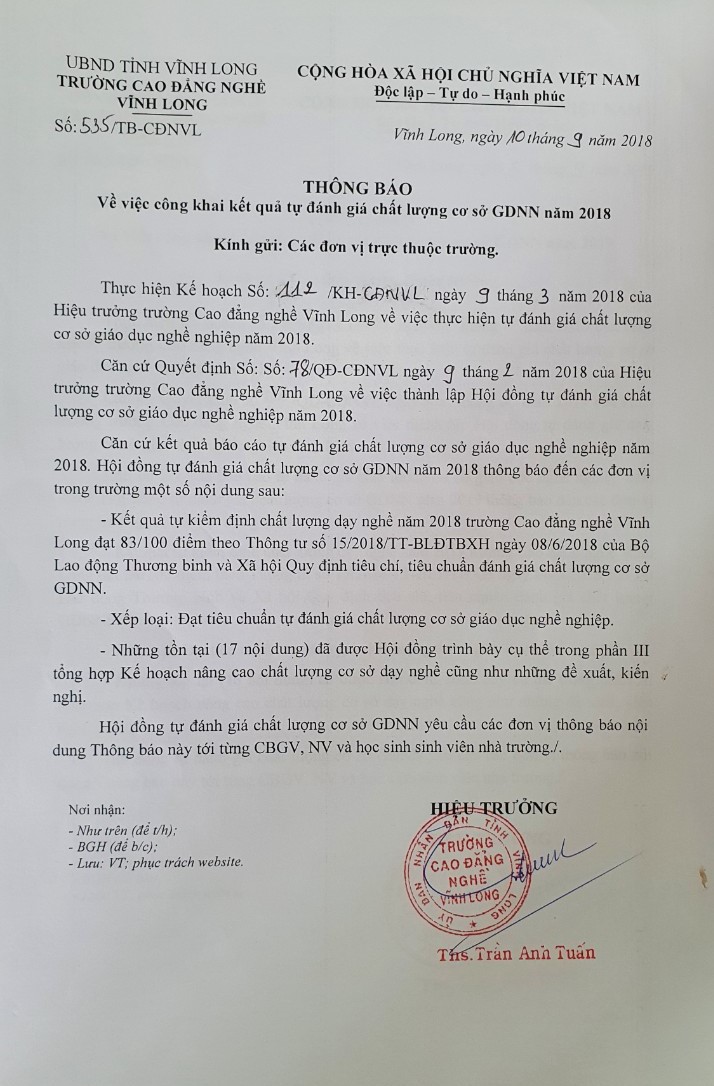 UBND TỈNH VĨNH LONG
TRƯỜNG CAO ĐẲNG NGHỀ
VĨNH LONG
Số: 535/TB-CĐNVL
CỘNG HÒA XÃ HỘI CHỦ NGHĨA VIỆT NAM
Độc lập – Tự do – Hạnh phúc
Vĩnh Long, ngày 10 tháng 9 năm 2018
THÔNG BÁO
Về việc công khai kết quả tự đánh giá chất lượng cơ sở GDNN năm 2018
Kính gửi: Các đơn vị trực thuộc trường.
Thực hiện Kế hoạch Số: 112 /KH-CĐNVL ngày 9 tháng 3 năm 2018 của
Hiệu trưởng trường Cao đẳng nghề Vĩnh Long về việc thực hiện tự đánh giá chất lượng
cơ sở giáo dục nghề nghiệp năm 2018.
Căn cứ Quyết định Số: Số: 78/QĐ-CĐNVL ngày 9 tháng 2 năm 2018 của Hiệu
trưởng trường Cao đẳng nghề Vĩnh Long về việc thành lập Hội đồng tự đánh giá chất
lượng cơ sở giáo dục nghề nghiệp năm 2018.
Căn cứ kết quả báo cáo tự đánh giá chất lượng cơ sở giáo dục nghề nghiệp năm
2018. Hội đồng tự đánh giá chất lượng cơ sở GDNN năm 2018 thông báo đến các đơn vị
trong trường một số nội dung sau:
- Kết quả tự kiểm định chất lượng dạy nghề năm 2018 trường Cao đẳng nghề Vĩnh
Long đạt 83/100 điểm theo Thông tư số 15/2018/TT-BLĐTBXH ngày 08/6/2018 của Bộ
Lao động Thương binh và Xã hội Quy định tiêu chí, tiêu chuẩn đánh giá chất lượng cơ sở
GDNN.
- Xếp loại: Đạt tiêu chuẩn tự đánh giá chất lượng cơ sở giáo dục nghề nghiệp.
- Những tồn tại (17 nội dung) đã được Hội đồng trình bày cụ thể trong phần III
tổng hợp Kế hoạch nâng cao chất lượng cơ sở dạy nghề cũng như những đề xuất, kiến
nghị.
Hội đồng tự đánh giá chất lượng cơ sở GDNN yêu cầu các đơn vị thông báo nội
dung Thông báo này tới từng CBGV, NV và học sinh sinh viên nhà trường./.
Nơi nhận:
- Như trên (để t/h);
- BGH (để b/c);
- Lưu: VT; phục trách website.
HIỆU TRƯỞNG
ỦY BAN NHÂN DÂN TỈNH VĨNH LONG
TRƯỜNG
CAO ĐẲNG
NGHỀ
VĨNH LONG
Ths. Trần Anh Tuấn